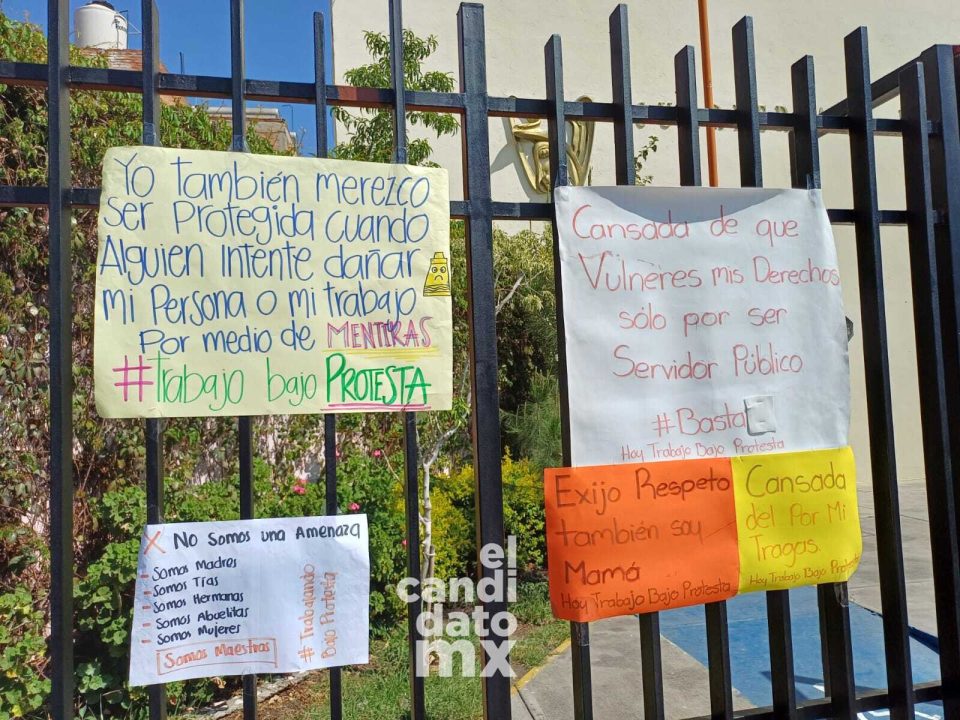 Yo también merezco
ser Protegida cuando
Alguien intente dañar
mi Persona o mi trabajo
Por medio de MENTIRAS
#Trabajo bajo PROTESTA
Cansada de que
Vulneres mis Derechos
sólo por ser
Servidor Público
#Basta
Hoy Trabajo Bajo Protesta
Exijo Respeto
también soy
Mamá
Hoy Trabajo Bajo Protesta
Cansada
del Por Mi
Tragas.
Hoy Trabajo Bajo Protesta
X No Somos una Amenaza
Somos Madres
Somos Tías
Somos Hermanas
Somos Abuelitas
Somos Mujeres
Somos Maestras
#Trabajando
Bajo Protesta
el
candi
dato
mx